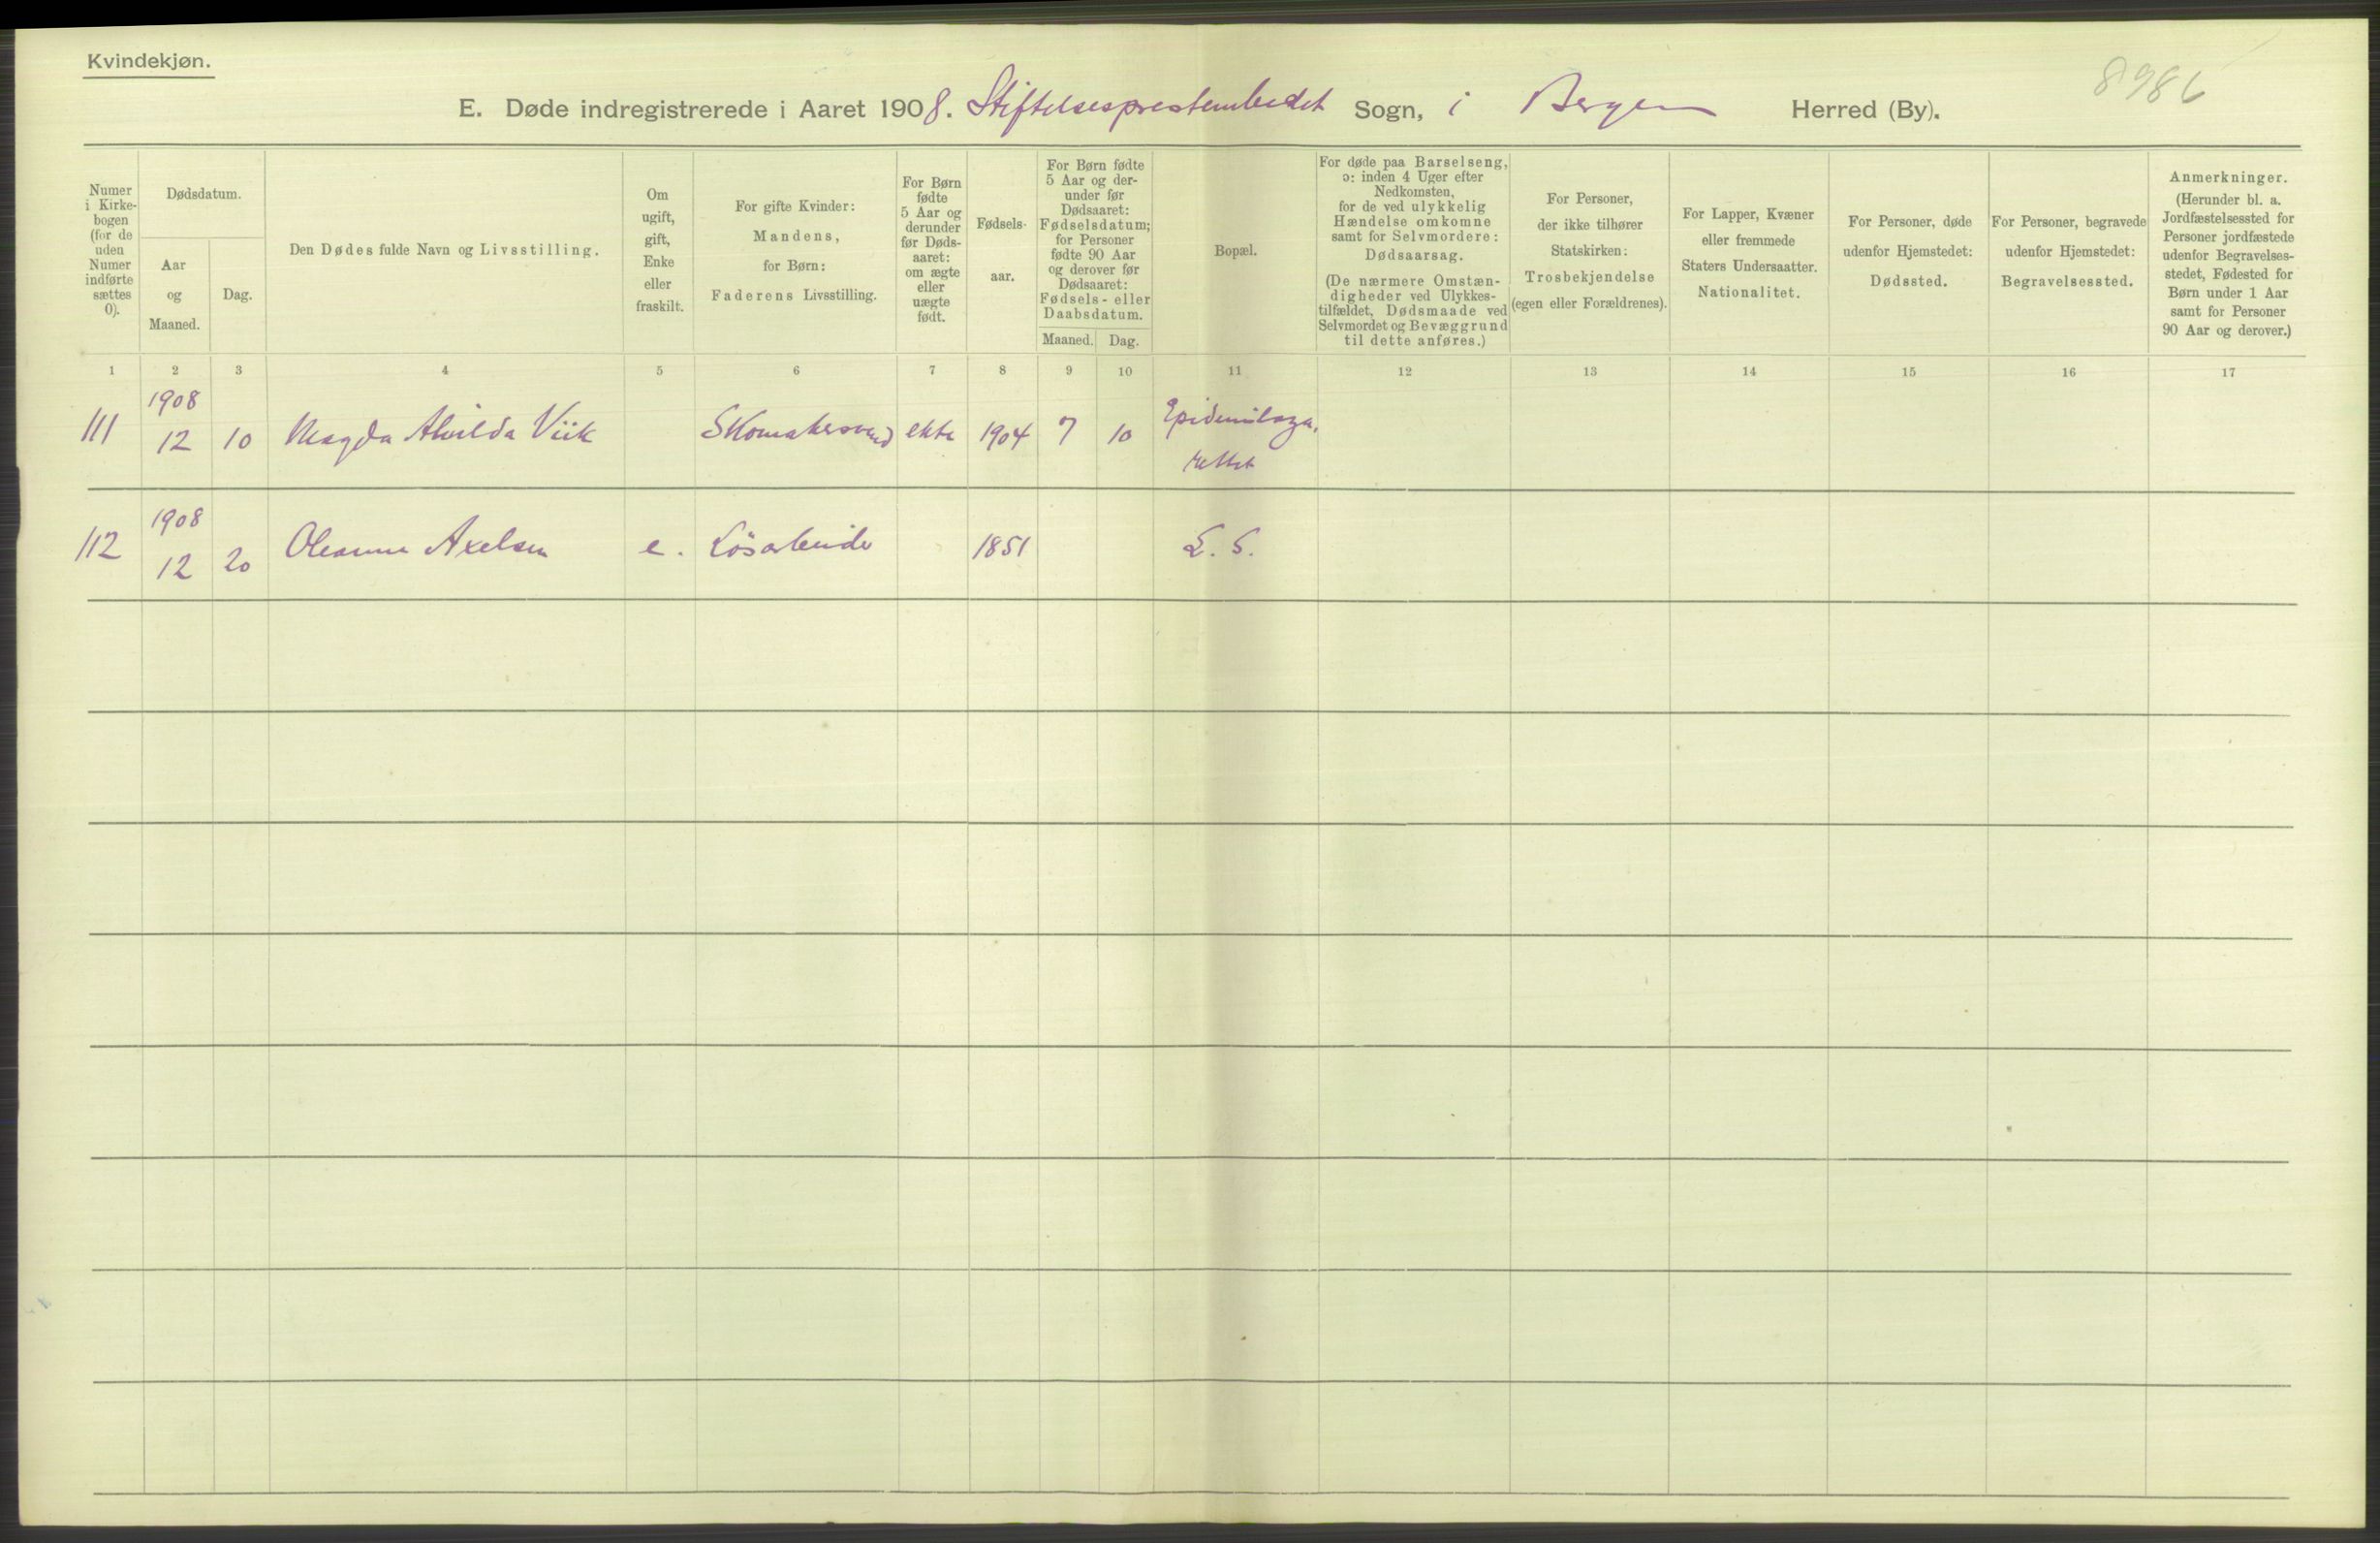 Kvindekjøn.
8986
E. Døde indregistrerede i Aaret 1908. Stiftelsesprestembedet Sogn, i Bergen Herred (By).
Numer i Kirke-bogen (for de uden Numer indførte sættes 0).
Dødsdatum.
Aar og Maaned.
Dag.
Den Dødes fulde Navn og Livsstilling.
Om ugift, gift, Enke eller fraskilt.
For gifte Kvinder: Mandens, for Børn: Faderens Livsstilling.
For Børn fødte 5 Aar og derunder før Døds-aaret: om ægte eller uægte født.
Fødsels-aar.
For Børn fødte 5 Aar og der-under før Dødsaaret: Fødselsdatum; for Personer fødte 90 Aar og derover før Dødsaaret: Fødsels- eller Daabsdatum.
Maaned. Dag.
Bopæl.
For døde paa Barselseng, ɔ: inden 4 Uger efter Nedkomsten, for de ved ulykkelig Hændelse omkomne samt for Selvmordere: Dødsaarsag.
(De nærmere Omstæn-digheder ved Ulykkes-tilfældet, Dødsmaade ved Selvmordet og Bevæggrund til dette anføres.)
For Personer, der ikke tilhører Statskirken: Trosbekjendelse (egen eller Forældrenes).
For Lapper, Kvæner eller fremmede Staters Undersaatter. Nationalitet.
For Personer, døde udenfor Hjemstedet: Dødssted.
For Personer, begravede udenfor Hjemstedet: Begravelsessted.
Anmerkninger. (Herunder bl. a. Jordfæstelsessted for Personer jordfæstede udenfor Begravelses-stedet, Fødested for Børn under 1 Aar samt for Personer 90 Aar og derover.)
1 2 3 4 5 6 7 8 9 10 11 12 13 14 15 16 17
111 1908 12 10 Magda Alvilda Viik Skomakersvend ekte 1904 7 10 Epidemilaza,rettet
112 1908 12 20 Oleanna Axelsen e. Løsarbeider 1851 L. S.